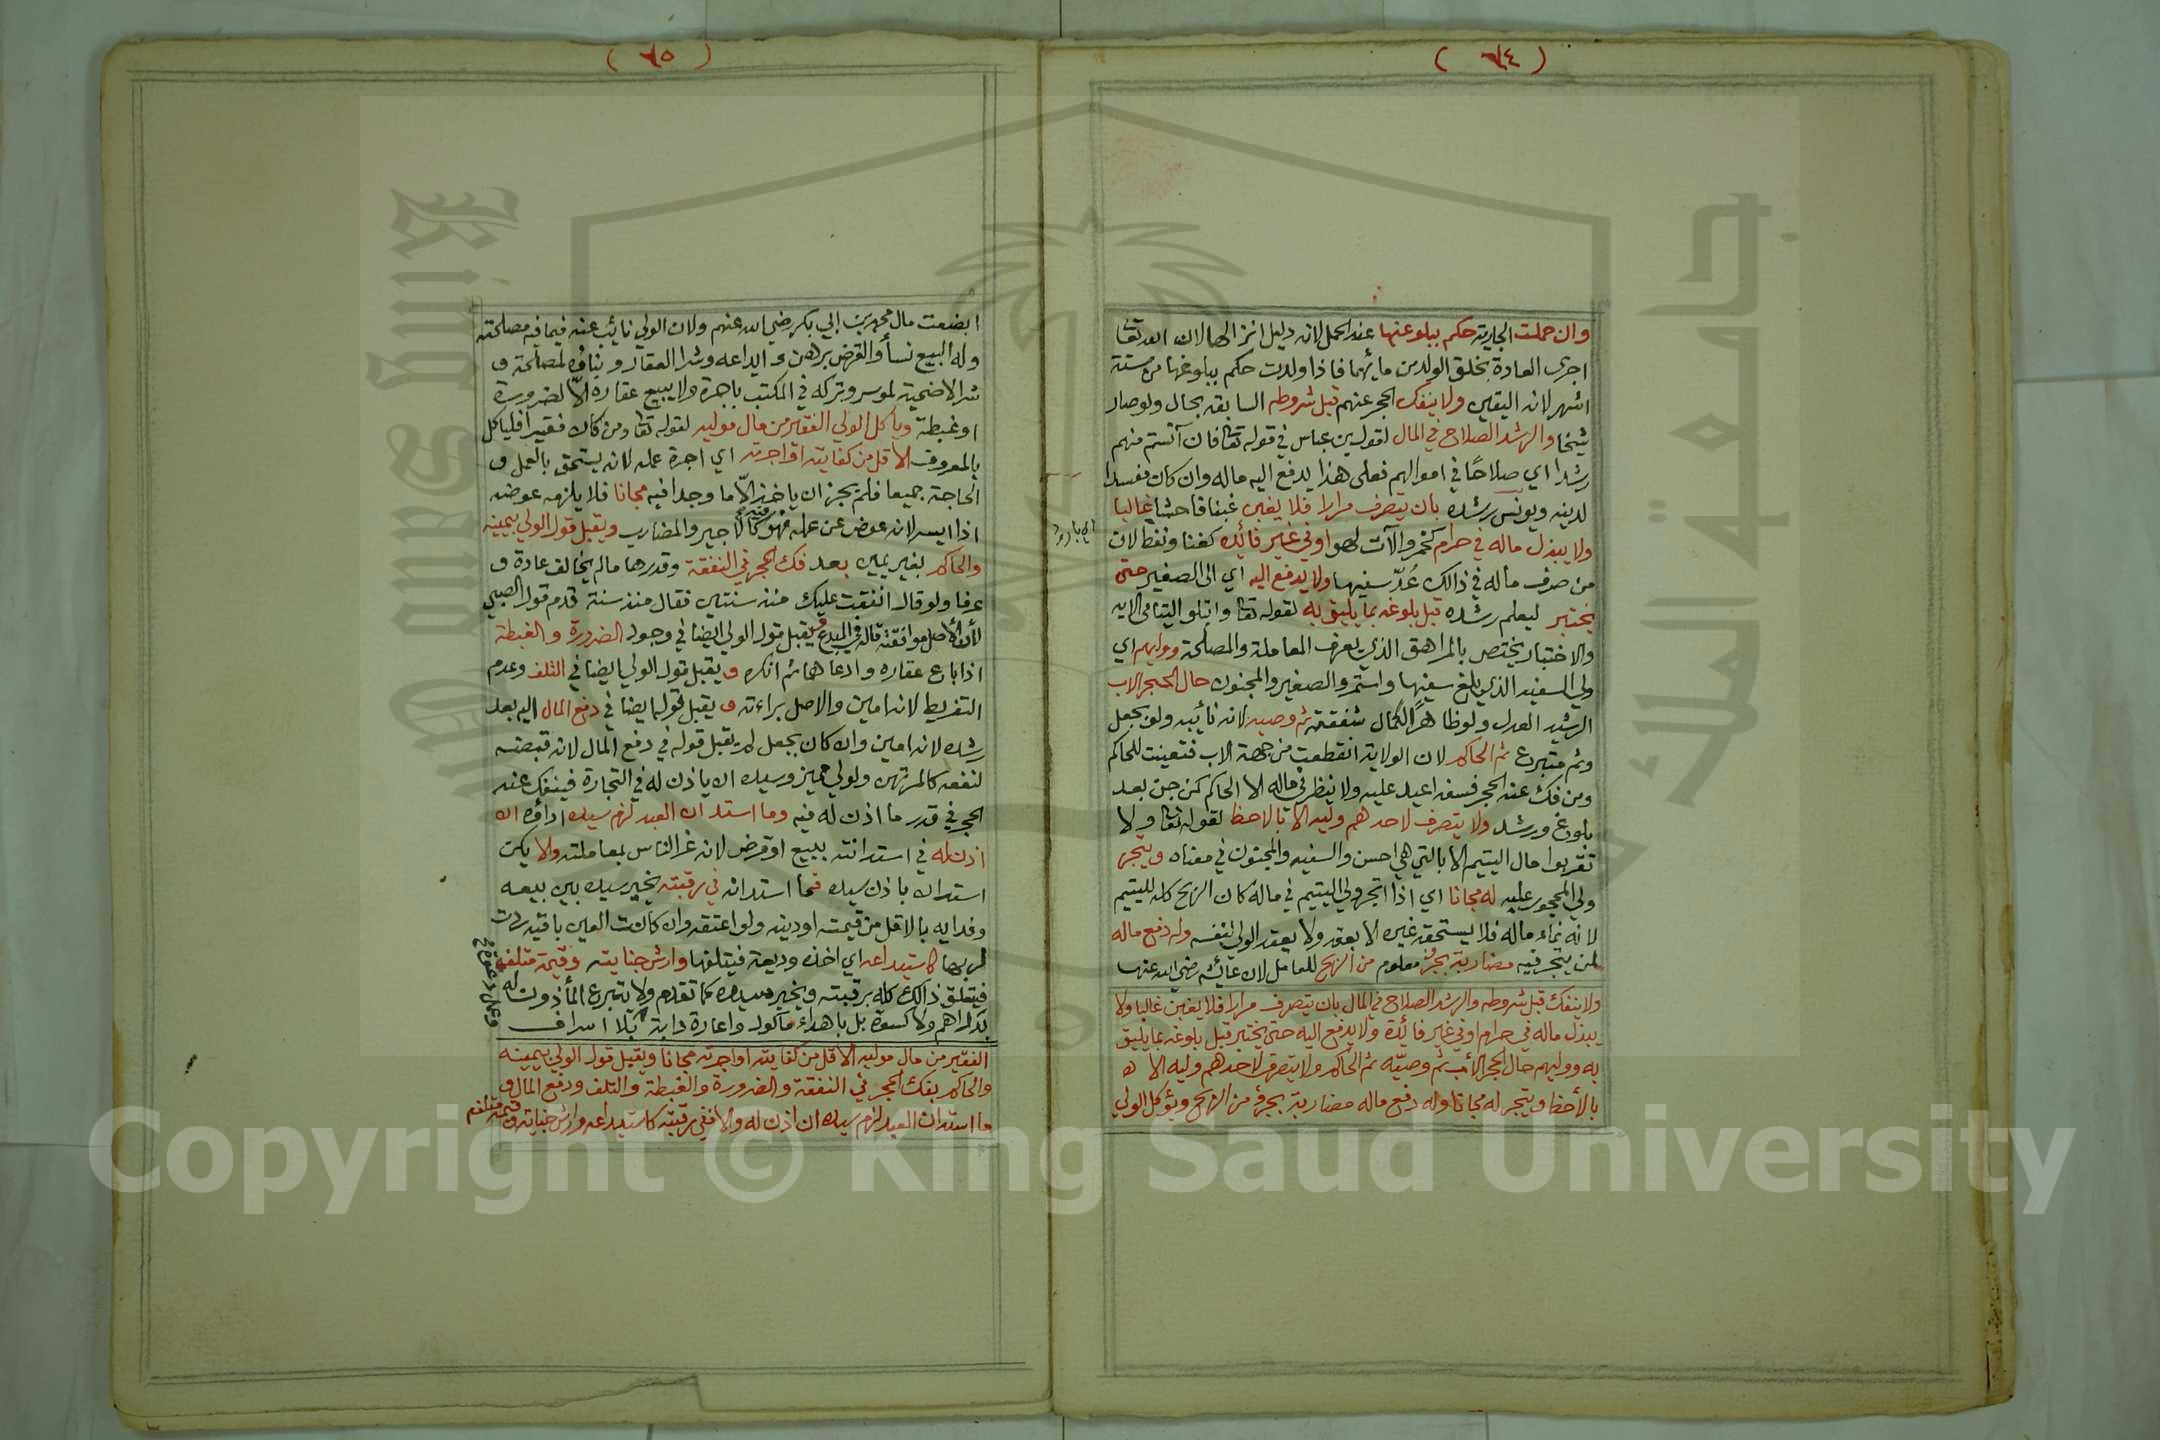 ( ٦٤ )
وان حملت الجارية حكم ببلوغها عند الحمل لانه دليل انزالها لان الله تعا
اجرى العادة بخلق الولد من مائهما فاذا ولدت حكم ببلوغها من ستة
اشهر لانه اليقين ولا ينفك الحجر عنهم قبل شروطه السابقة بحال ولو صار
شيخا والرشد الصلاح في المال لقول بن عباس في قوله تعا فان آنستم منهم
رشدا اي صلاحًا في اموالهم فعلى هذا يدفع اليه ماله وان كان مفسدا
لدينه ويونس رشده بان يتصرف مرارا فلا يغبن غبنا فاحشا غالبا
ولا يبذل ماله في حرام كخمر وآلات لهو او في غير فائدة كغنا ونفط لان
من صرف ماله في ذالك عُدّ سفيها ولا يدفع اليه اي الى الصغير حتى
يختبر ليعلم رشده قبل بلوغه بما يليق به لقوله تعا وابتلو اليتامى الايه
والاختبار يختص بالمراهق الذي يعرف المعاملة والمصلحة ووليهم اي
ولي السفيه الذي بلغ سفيها واستمر والصغير والمجنون حال الحجر الاب
الرشيد العدل ولو ظاهرًا لكمال شفقته ثم وصيه لانه نائبه ولو بجعل
وثم متبرع ثم الحاكم لان الولاية انقطعت من جهة الاب فتعينت للحاكم
ومن فك عنه الحجر فسفه اعيد عليه ولا ينظر في ماله الا الحاكم كمن جن بعد
بلوغ ورشد ولا يتصرف لاحدهم وليه الا بالاحظ لقوله تعا ولا
تقربوا مال اليتيم الا بالتي هي احسن والسفيه والمجنون في معناه ويتجر
ولي المحجور عليه له مجانا اي اذا اتجر ولي اليتيم في ماله كان الربح كله لليتيم
لانه نماء ماله فلا يستحقه غيره الا بعقد ولا يعقد الولي لنفسه وله دفع ماله
لمن يتجر فيه مضاربة بجزء معلوم من الربح للعامل لان عائشه رضي الله عنها
ولا ينفك قبل شروطه والرشد الصلاح في المال بان يتصرف مرارا فلا يغبن غالبا ولا
يبذل ماله في حرام او في غير فائدة ولا يدفع اليه حتى يختبر قبل بلوغه بما يليق
به ووليهم حال الحجر الأب ثم وصيّه ثم الحاكم ولا يتصرف لاحدهم وليه الا
بالأحظ ويتجر له مجانا وله دفع ماله مضاربة بجزء من الربح ويؤكل الولي
( ٦٥ )
ابضعت مال محمد بن ابي بكر رضي الله عنهم ولان الولي نائب عنه فيما فيه مصلحته
وله البيع نسأ والقرض برهن وايداعه وشرا العقار وبناؤه لمصلحة و
شرا الاضحية لموسر وتركه في المكتب باجرة ولا يبيع عقاره الّا لضرورة
او غبطة وياكل الولي الفقير من مال موليه لقوله تعا ومن كان فقيرا فلياكل
بالمعروف الاقل من كفايته او اجرته اي اجرة عمله لانه يستحق بالعمل و
الحاجة جميعا فلم يجز ان ياخذ الّا ما وجدا فيه مجانا فلا يلزمه عوضه
اذا ايسر لانه عوض عن عمله فهو فيه كالاجير والمضارب ويقبل قول الولي بيمينه
والحاكم بغير يمين بعد فك الحجر في النفقة وقدرها مالم يخالف عادة و
عرفا ولو قال انفقت عليك منذ سنتين فقال منذ سنة قدم قول الصبي
لأن الأصل موافقته قاله في المبدع ويقبل قول الولي ايضا في وجود الضرورة والغبطة
اذا باع عقاره وادعاهما ثم انكره ويقبل قول الولي ايضا في التلف وعدم
التفريط لانه امين والاصل براءته ويقبل قوله ايضا في دفع المال اليه بعد
رشده لانه امين وان كان بجعل لم يقبل قوله في دفع المال لانه قبضه
لنفعه كالمرتهن ولولي مميز وسيده ان ياذن له في التجارة فينفك عنه
الحجر في قدر ما اذن له فيه وما استدان العبد لزم سيده اداؤه ان
اذن له في استدانته ببيع او قرض لانه غر الناس بمعاملته والا يكن
استدان باذن سيده فما استدانه في رقبته يخير سيده بين بيعه
وفدايه بالاقل من قيمته او دينه ولو اعتقه وان كانت العين باقية ردت
لربها كاستيداعه اي اخذه وديعة فيتلفها وارش جنايته وقيمة متلفه
فيتعلق ذالك كله برقبته ويخير سيده كما تقدم ولا يتبرع المأذون له
بدراهم ولا كسوة بل باهداء ماكول واعارة دابة بلا اسراف
الفقير من مال موليه الاقل من كفايته او اجرته مجانا ويقبل قول الولي بيمينه
والحاكم بفك الحجر في النفقة والضرورة والغبطة والتلف ودفع المال و
ما استدان العبد لزم سيده ان اذن له والا ففي رقبته كاستيداعه وارش جنايته وقيمة متلفه
Copyright © King Saud University
King Saud University
جامعة الملك سعود